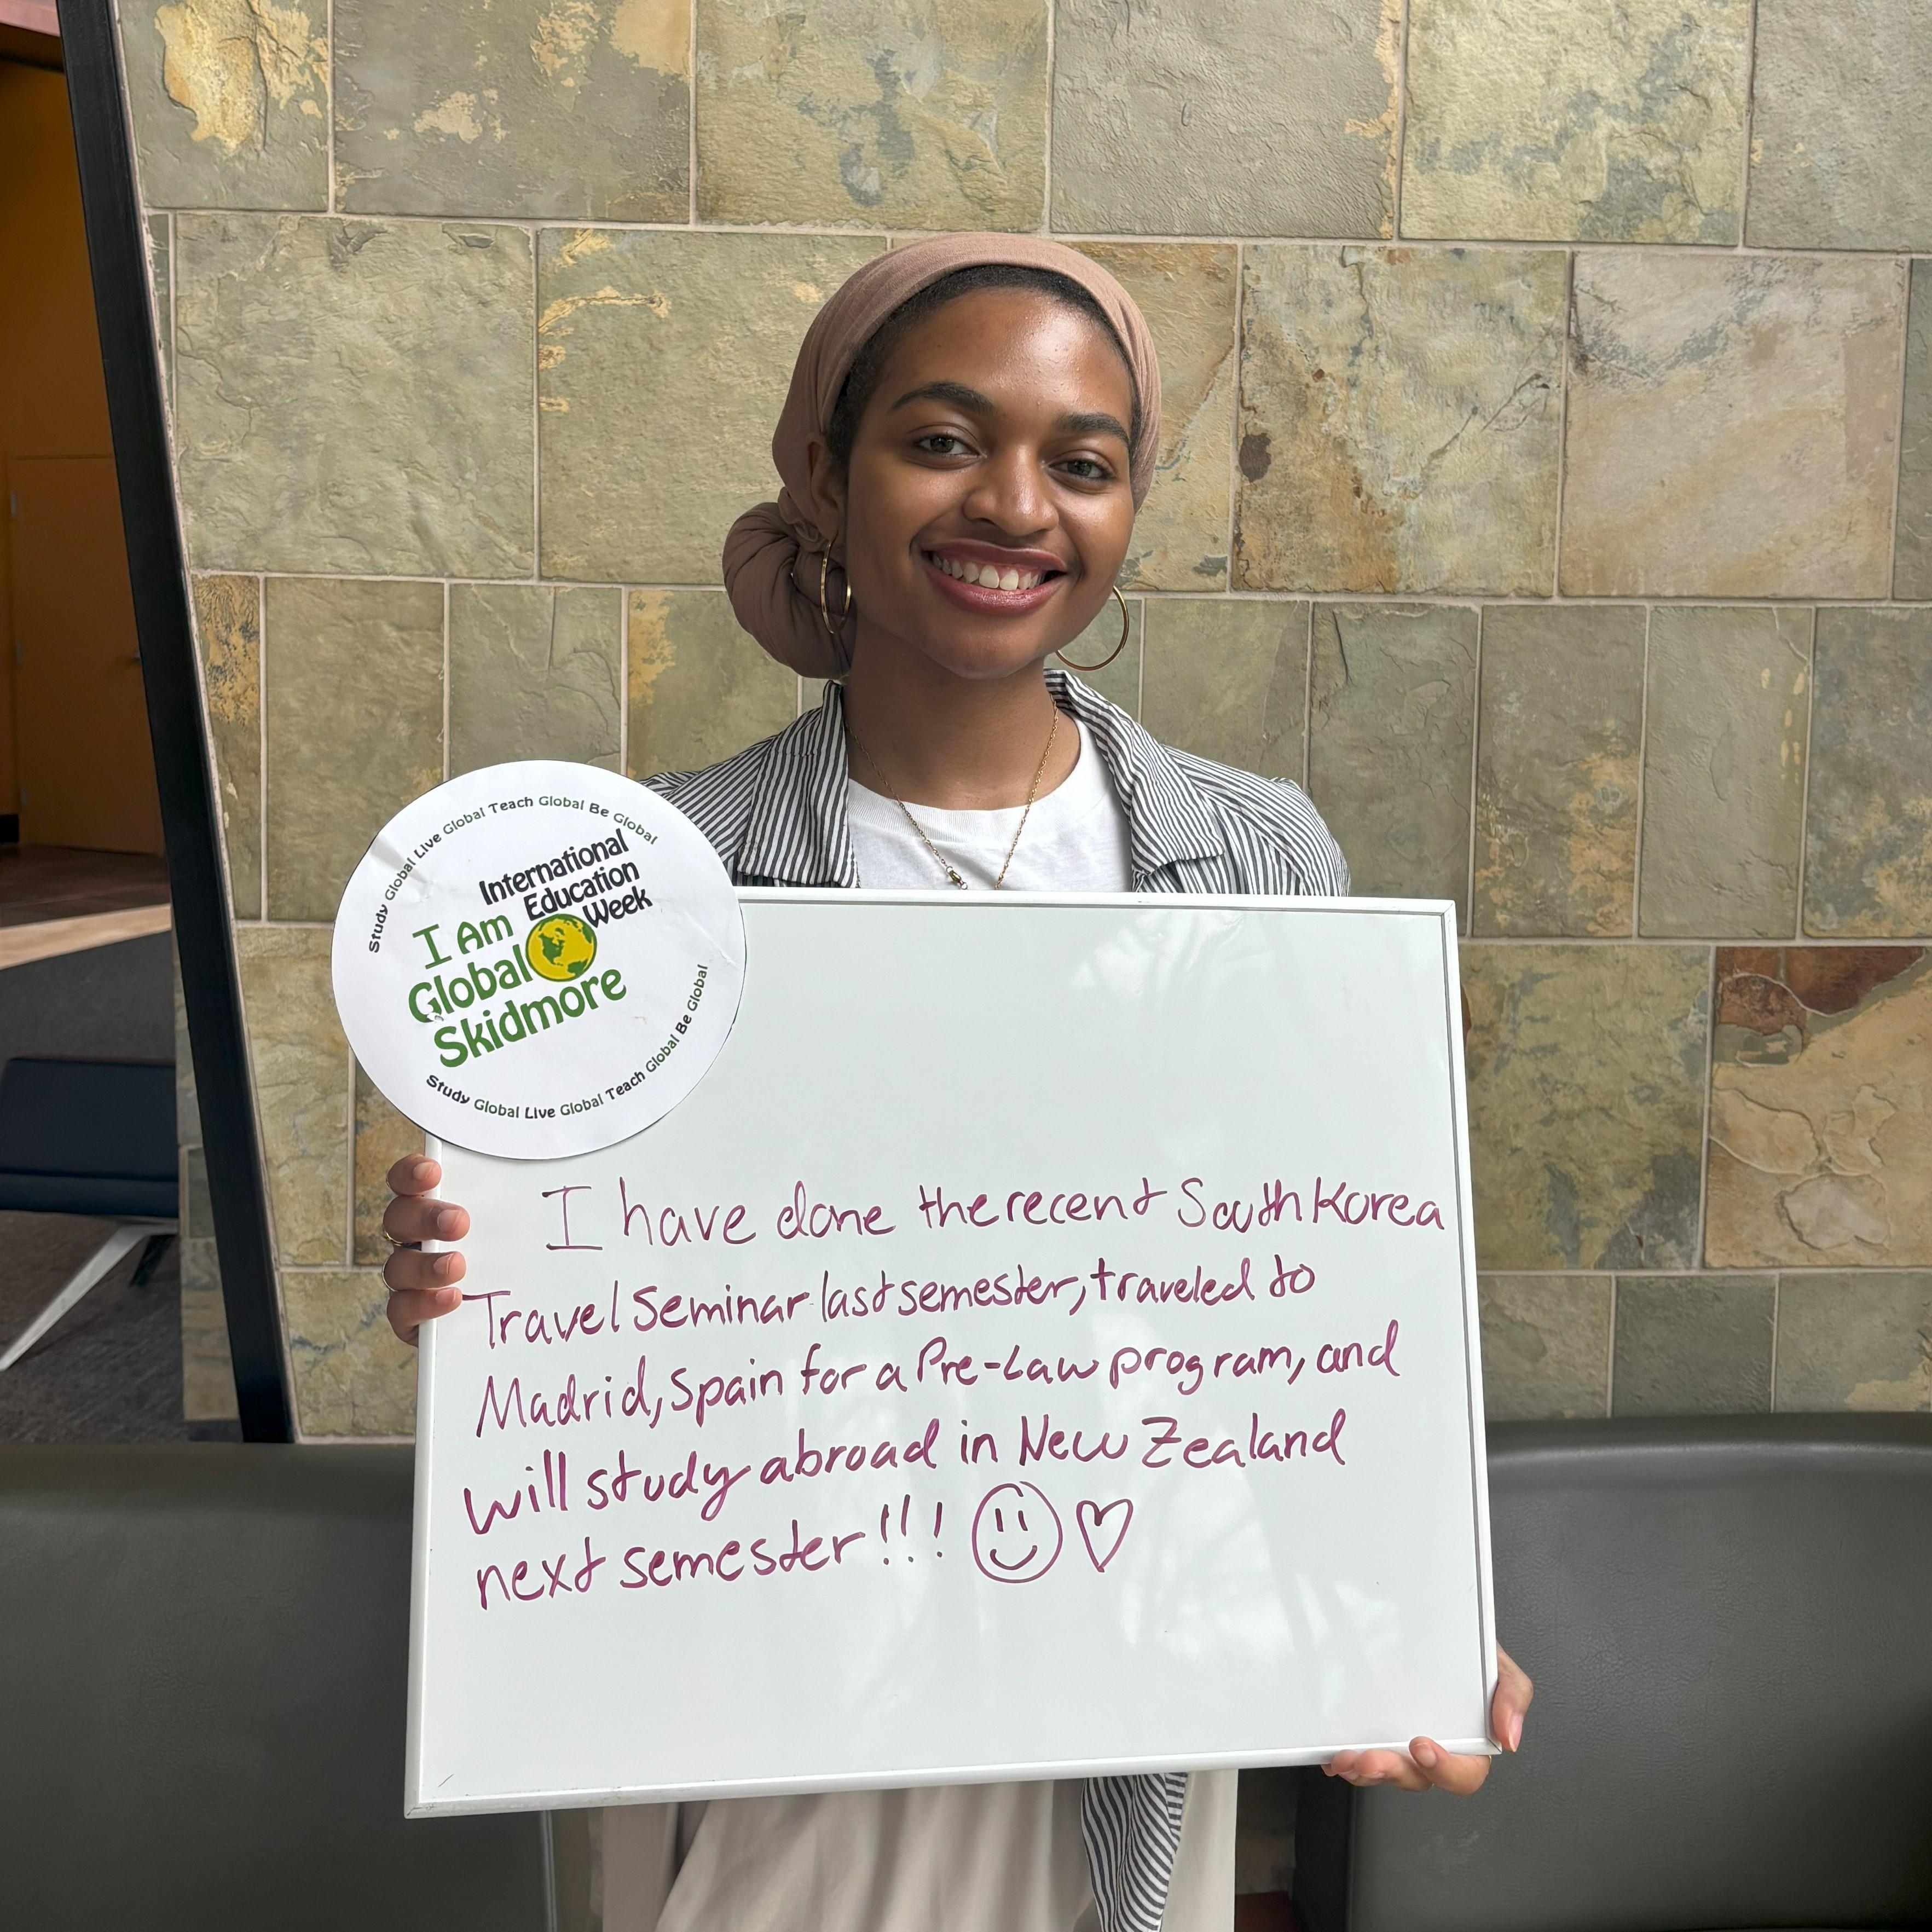 Study Global Live Global Teach Global Be Global
International
Education
Week
I Am
Global
Skidmore
Study Global Live Global Teach Global Be Global
I have done the recent South Korea
Travel Seminar last semester, traveled to
Madrid, Spain for a Pre-Law program, and
will study abroad in New Zealand
next semester!!!